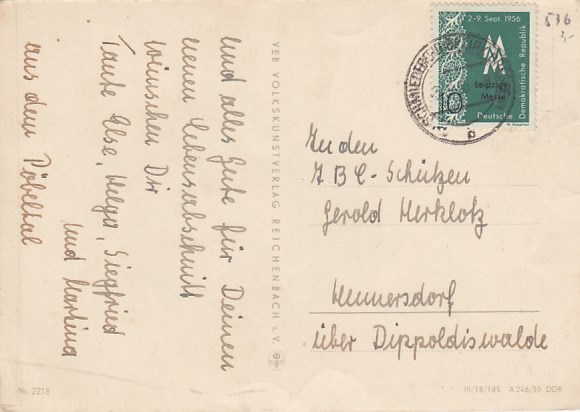 und alles Gute für Deinen
neuen Lebensabschnitt
wünschen Dir
Tante Else, Helga, Siegfried
und Martina
aus dem Pöbeltal
VEB VOLKSKUNSTVERLAG REICHENBACH i. V.
2.-9. Sept. 1956
MM
Leipziger
Messe
10
Deutsche Demokratische Republik
536
2,-
An den
ABC-Schützen
Gerold Herklotz
Hennersdorf
über Dippoldiswalde
Nr. 2218
III/18/185 A 246/55 DDR